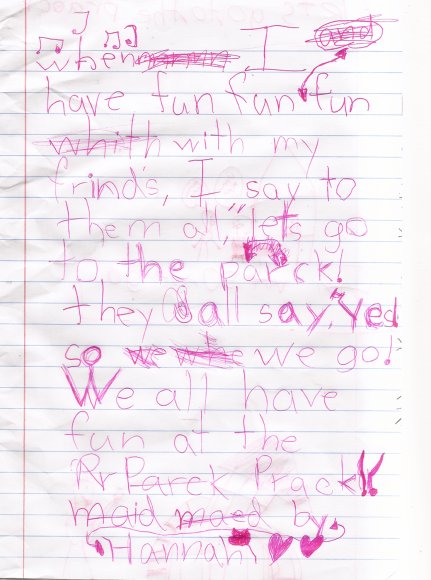 and
when I
have fun fun fun
whith with my
frinds, I say to
them all, "lets go
to the parck!
they all say, "Yes
so we we we go!
We all have
fun at the
Rr Parck Prack!!
maid maed by
Hannah